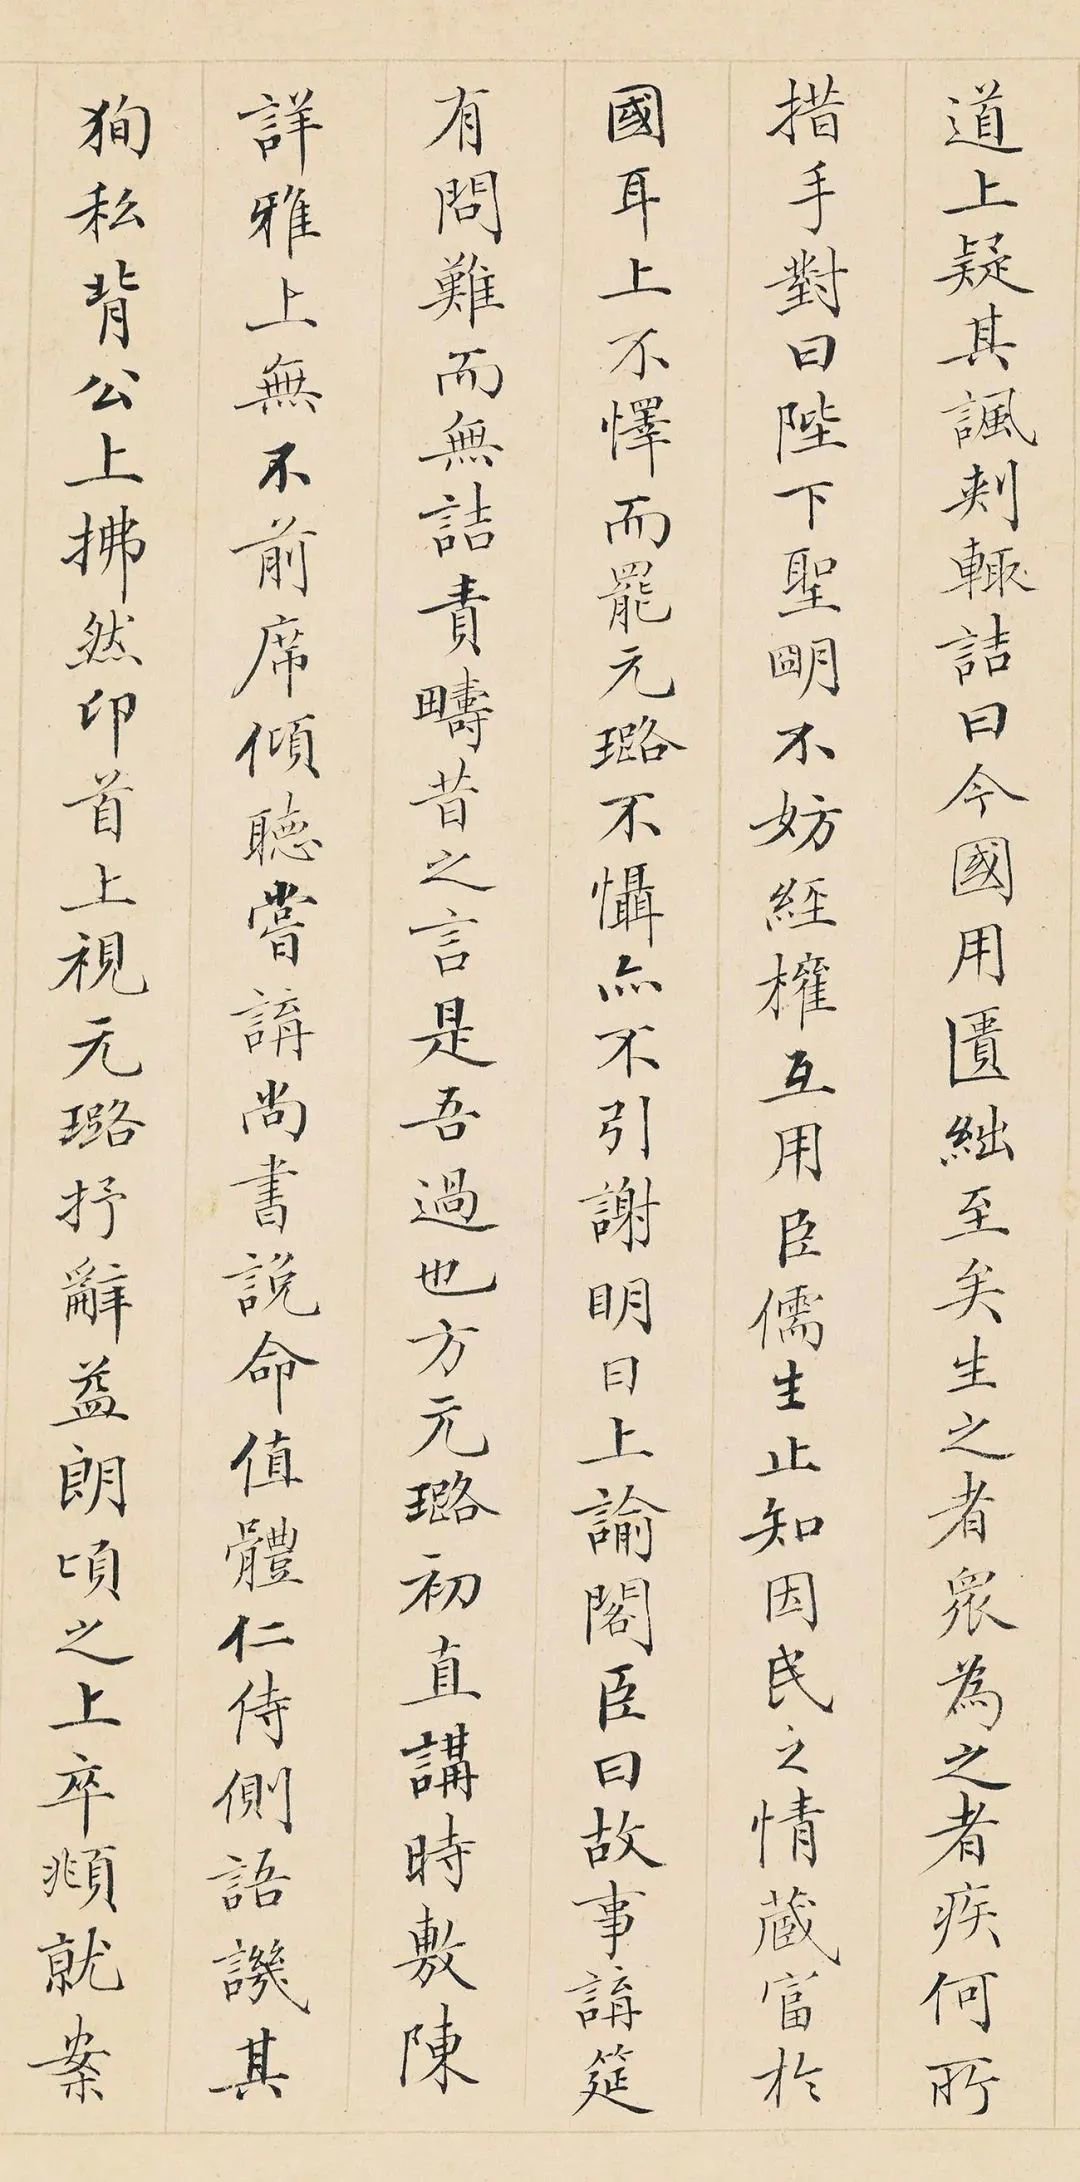 道上疑其諷刺輙詰曰今國用匱絀至矣生之者眾為之者疾何所
措手對曰陛下聖明不妨經權互用臣儒生止知因民之情藏富於
國耳上不懌而罷元璐不懾亦不引謝明日上諭閣臣曰故事講筵
有問難而無詰責疇昔之言是吾過也方元璐初直講時敷陳
詳雅上無不前席傾聽嘗講尚書説命值體仁侍側語譏其
狥私背公上拂然卬首上視元璐抒辭益朗頃之上卒頫就案